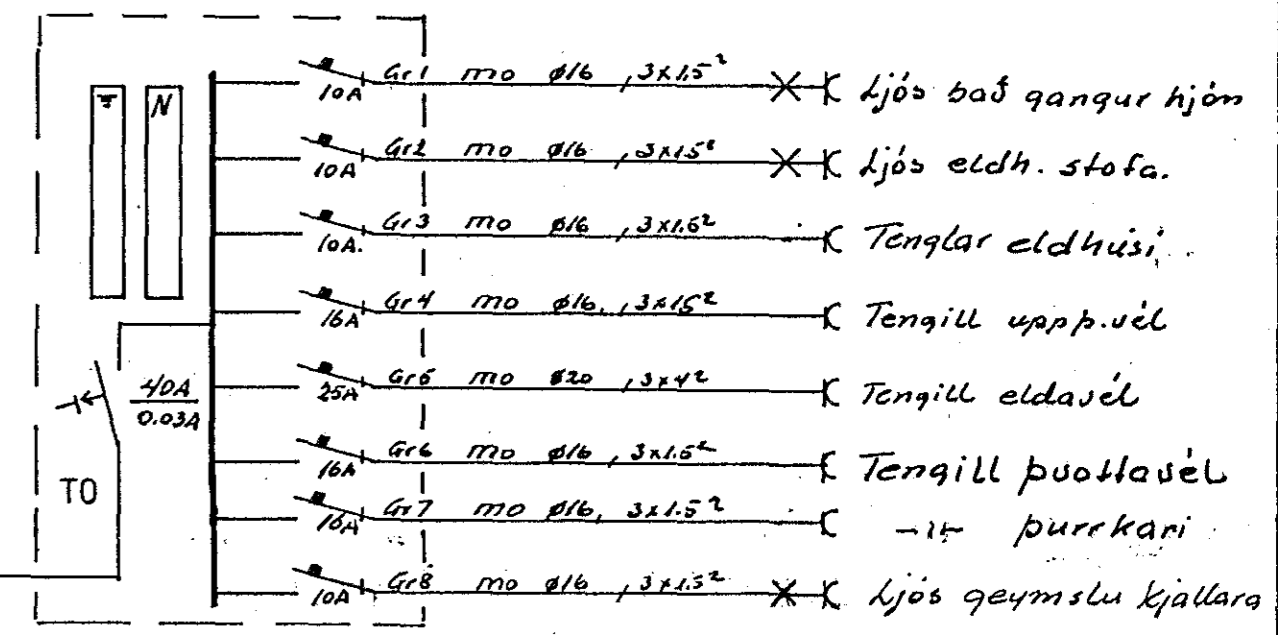 Gr1 mo ø16, 3x1.5² Ljós bað gangur hjón
10A
N
Gr2 mo ø16, 3x1.5² Ljós eldh. stofa.
10A
Gr3 mo ø16, 3x1.5² Tenglar eldhúsi
10A.
Gr4 mo ø16, 3x1.5² Tengill uppþ.vél
16A
40A
0.03A
Gr5 mo ø20, 3x4² Tengill eldavél
25A
Gr6 mo ø16, 3x1.5² Tengill þvottavél
16A
TO
Gr7 mo ø16, 3x1.5² -11- þurrkari
16A
Gr8 mo ø16, 3x1.5² Ljós geymslu kjallara
10A